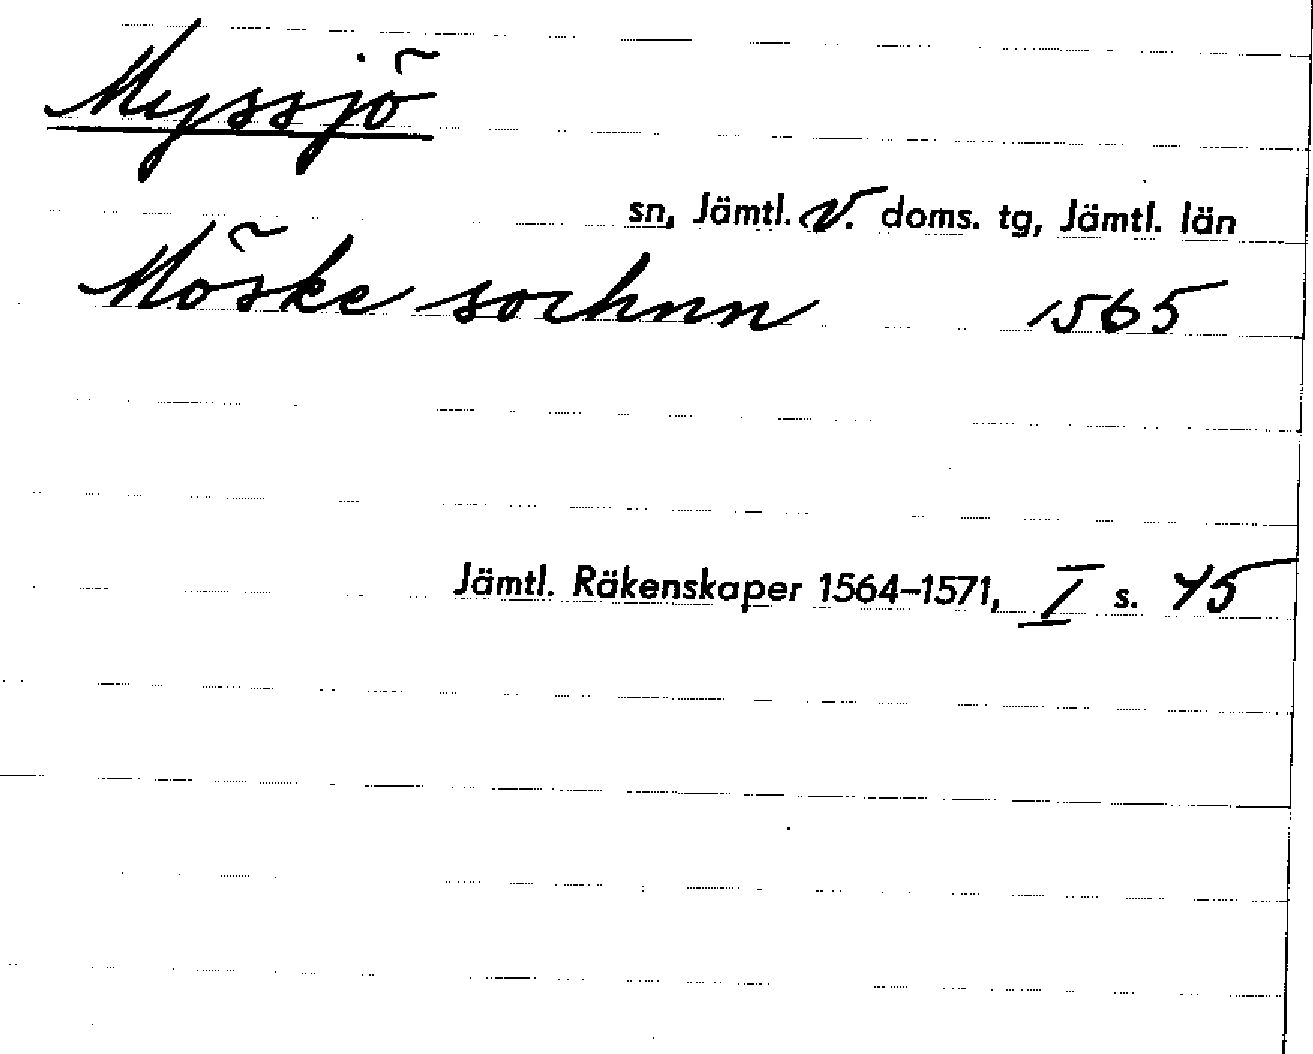 Myssjö
sn, Jämtl. V. doms. tg, Jämtl. län
Möske sochnn 1565
Jämtl. Räkenskaper 1564–1571, I s. 45